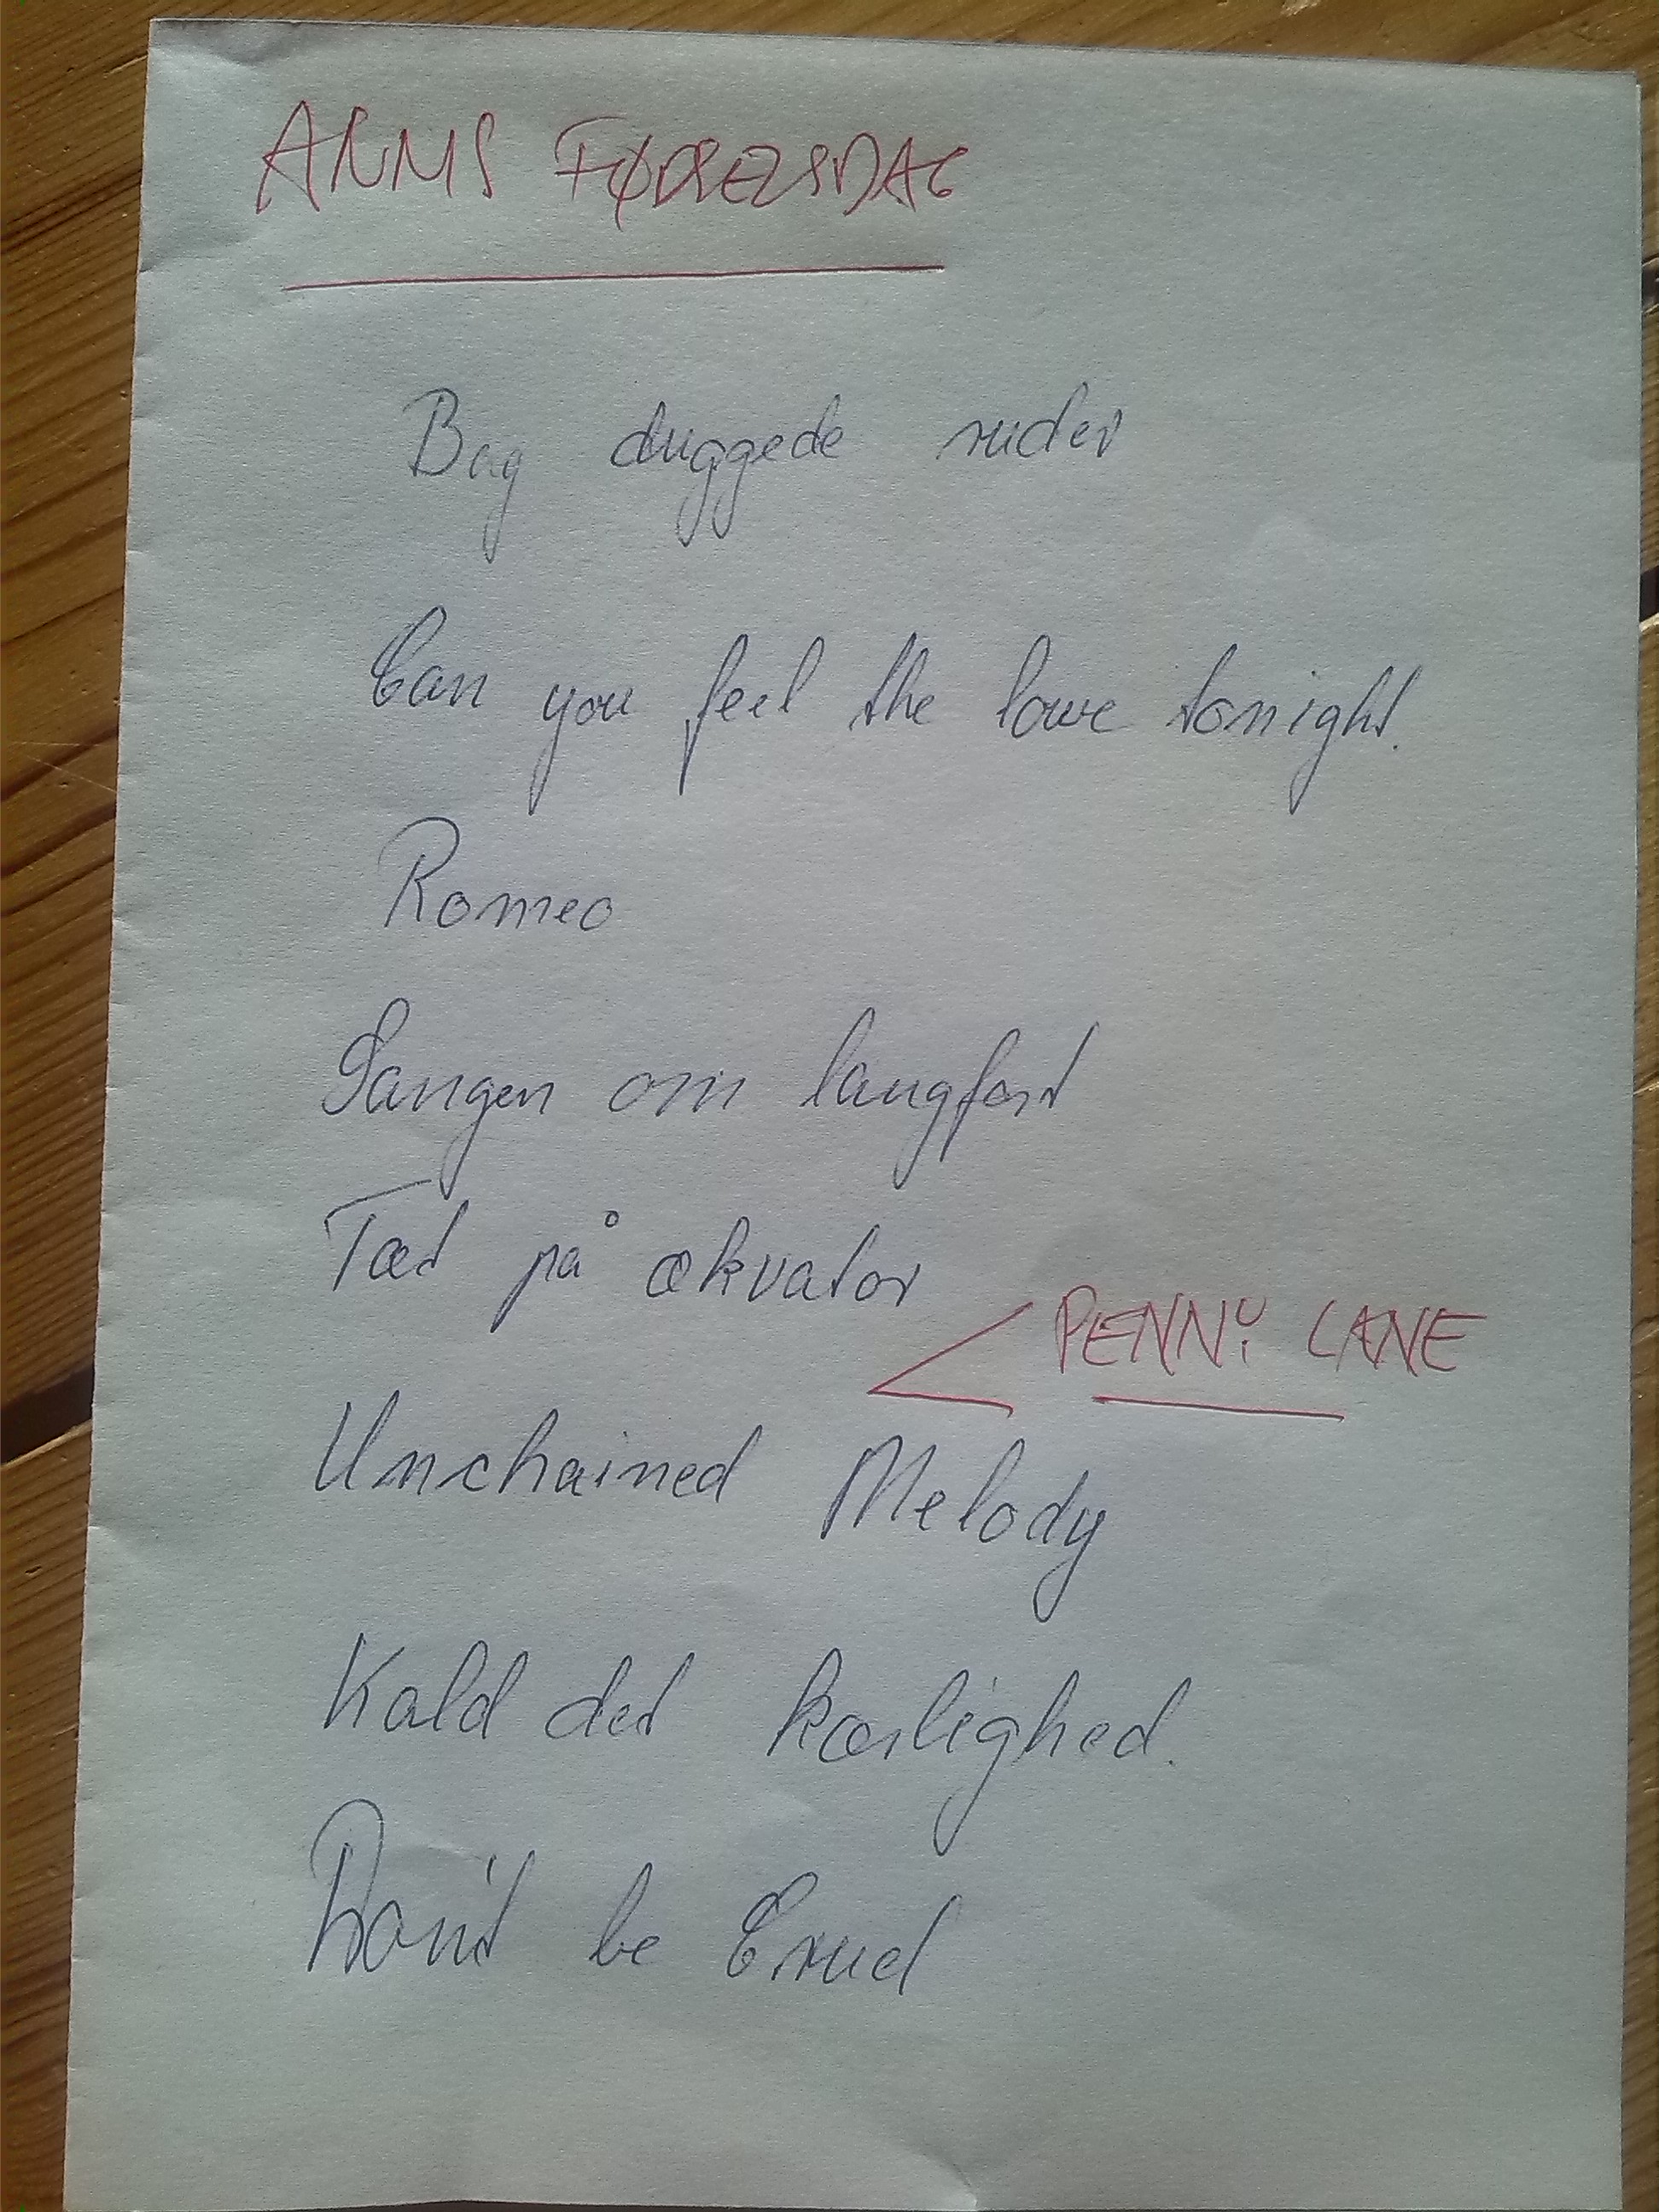 ANNS FØDSELSDAG
Bag duggede ruder
Can you feel the lowe tonight.
Romeo
Sangen om langfart
Tæt på ækvator
PENNY LANE
Unchained Melody
Kald det kærlighed.
Don't be Cruel